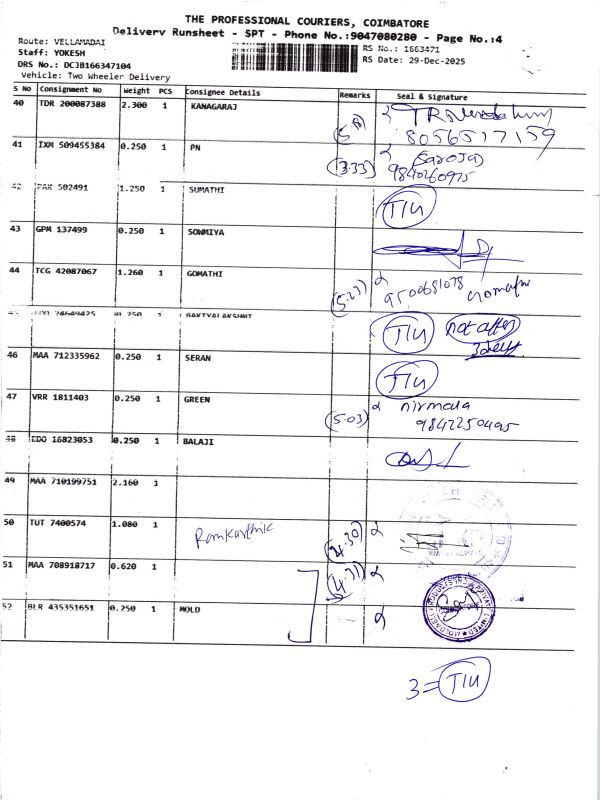 THE PROFESSIONAL COURIERS, COIMBATORE
Delivery Runsheet - SPT - Phone No.:9047080280 - Page No.:4
Route: VELLAMADAI
Staff: YOKESH
DRS No.: DCJB166347104
Vehicle: Two Wheeler Delivery
RS No.: 1663471
RS Date: 29-Dec-2025
S No Consignment No Weight PCS Consignee Details Remarks Seal & Signature
40 TDR 200087388 2.300 1 KANAGARAJ
8056517159
41 IXM 509455384 0.250 1 PN (3.33) Saroja
9840260975
42 PAK 502491 1.250 1 SUMATHI T/U
43 GPM 137499 0.250 1 SOWMIYA
44 TCG 42087067 1.260 1 GOMATHI (5.27) 9500681078 Gomathi
45 24649425 0.250 1 BAKIYALAKSHMI T/U not after
3 days
46 MAA 712335962 0.250 1 SERAN T/U
47 VRR 1811403 0.250 1 GREEN (5.03) nirmala
9842250495
48 EDO 16823053 0.250 1 BALAJI
49 MAA 710199751 2.160 1
50 TUT 7400574 1.080 1 Ramkarthik (4.30)
51 MAA 708918717 0.620 1 (4.31)
52 BLR 435351651 0.250 1 MOLD
3 = T/U